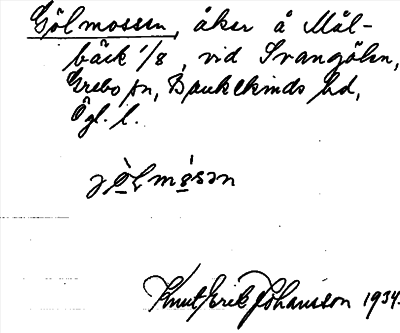 Gölmossen, åker å Mål-
bäck 1/8, vid Svangölen,
Grebo sn, Bankekinds hd,
Ögl. l.
jölmosən
Knut Erik Johansson 1934.